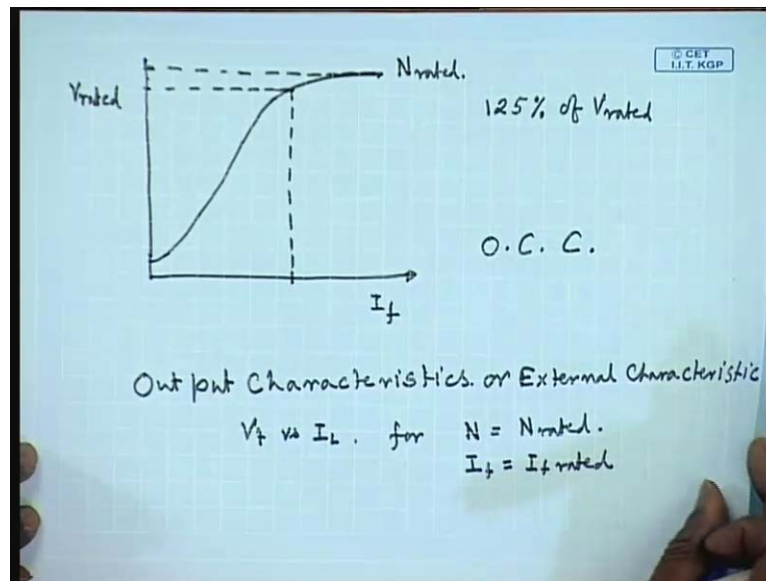 © CET
I.I.T. KGP
Nrated.
Vrated
125% of Vrated
O.C.C.
If
Output Characteristics. or External Characteristic
Vt vs IL. for N = Nrated.
If = If rated